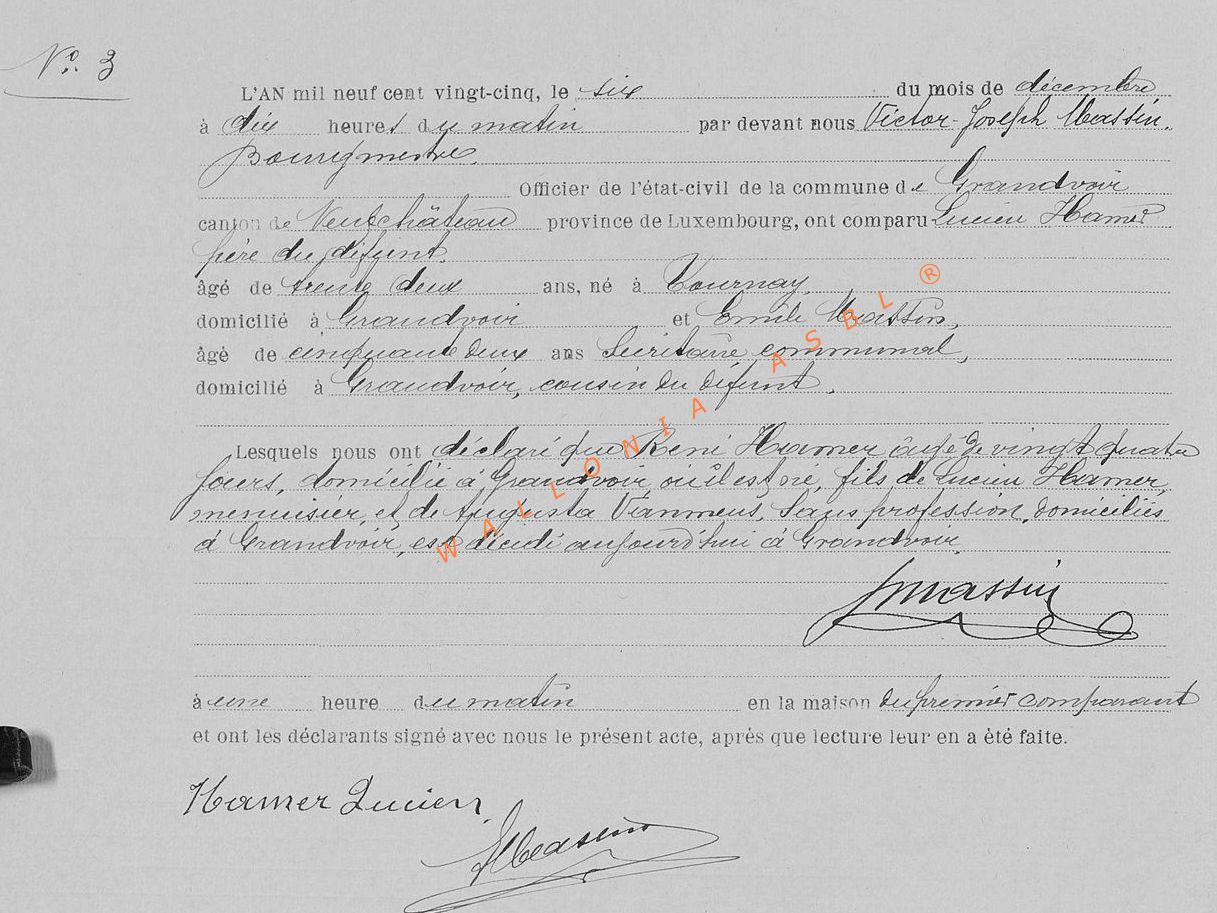 N° 3
L'AN mil neuf cent vingt-cinq, le six du mois de décembre
à dix heures du matin par devant nous Victor-Joseph Massin.
Bourgmestre.
Officier de l'état-civil de la commune de Grandvoir
canton de Neufchâteau province de Luxembourg, ont comparu Lucien Hamer
père du défunt.
âgé de trente deux ans, né à Tournay,
domicilié à Grandvoir et Emile Massin,
âgé de cinquante deux ans Secrétaire communal,
domicilié à Grandvoir, cousin du défunt.
Lesquels nous ont déclaré que René Hamer âgé de vingt quatre
jours, domicilié à Grandvoir où il est né, fils de Lucien Hamer,
menuisier, et de Augusta sans profession, domiciliés
à Grandvoir, est décédé aujourd'hui à Grandvoir,
Massin
à une heure du matin en la maison du premier comparant
et ont les déclarants signé avec nous le présent acte, après que lecture leur en a été faite.
Hamer Lucien
Massin
WALLONIA ASBL ®